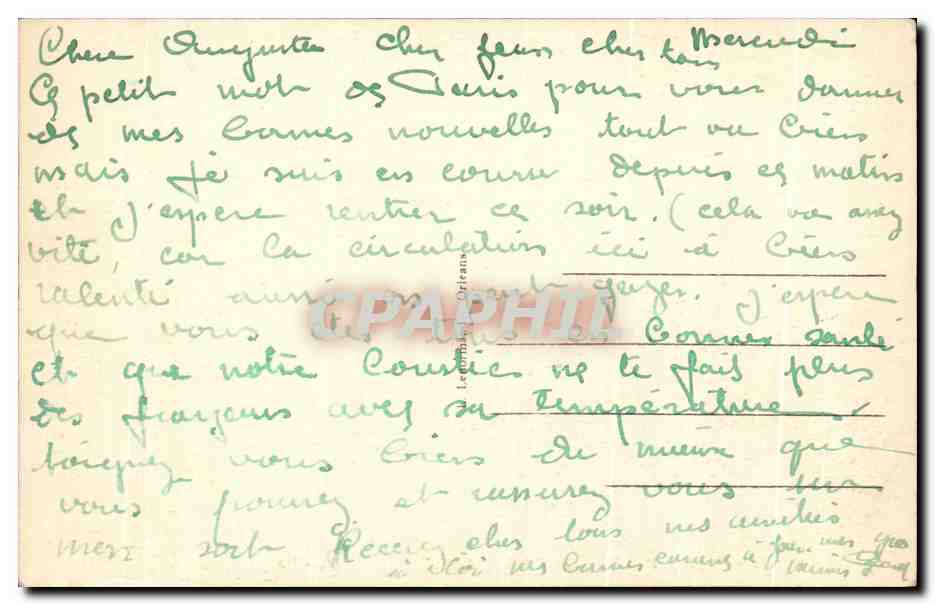 Chere Augusta cher chers tous Mercredi
Ce petit mot de Paris pour vous donner
de mes bonnes nouvelles tout va bien
mais je suis en course depuis ce matin
et j'espere rentrer ce soir. (cela va assez
vite, car la circulation ici a bien
ralenti aussi on peut gazer. j'espere
que vous êtes tous en bonne santé
et que notre ne te fait plus
des avec sa température
soignez vous bien du mieux que
vous pouvez et rassurez vous sur
mon sort Recevez chers tous mes amitiés
mes bonnes à mes gros
CPAPHIL
Orleans